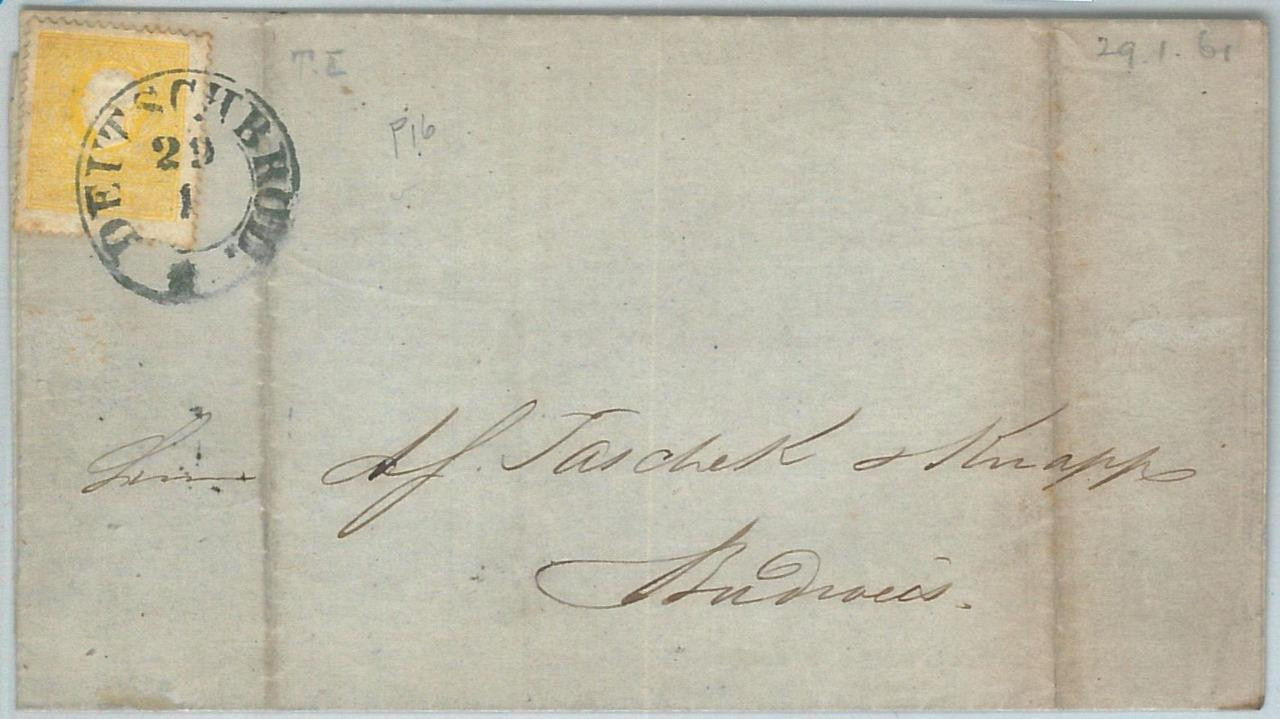 T.I
29.1.61
P16
DEUTSCHBROD.
29
1
Herrn Af. Taschek & Knapp
Budweis.